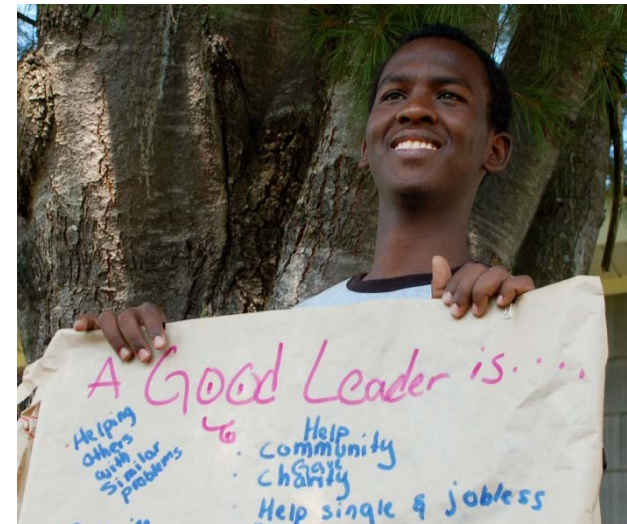 A Good Leader is....
· Helping
others
with
Similar
problems
Help
· community
· charity
· Help single & jobless